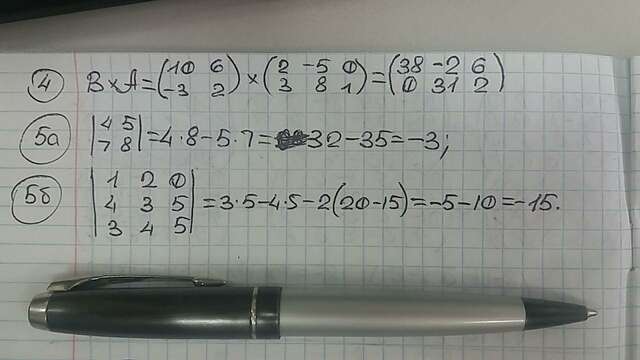 4 B×A=(10 6 -3 2)×(2 -5 0 3 8 1)=(38 -2 6 0 31 2)
5а |4 5 7 8|=4·8-5·7=32-35=-3;
5б |1 2 0 4 3 5 3 4 5|=3·5-4·5-2(20-15)=-5-10=-15.